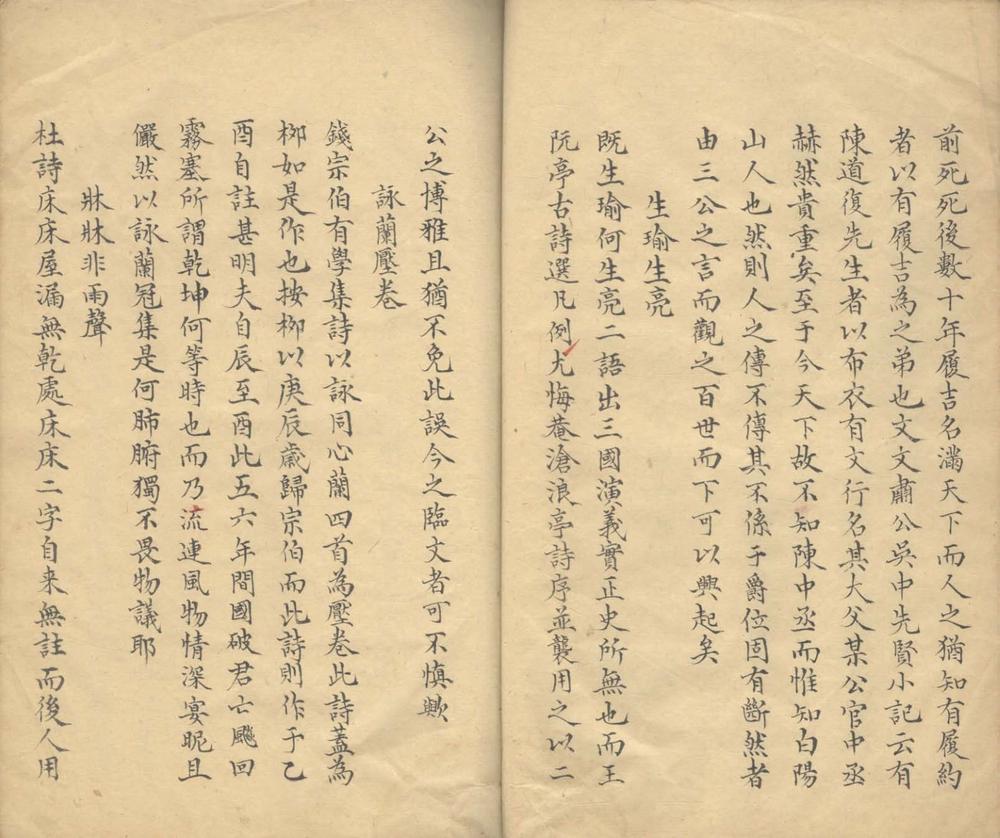 前死死後數十年履吉名滿天下而人之猶知有履約
者以有履吉為之弟也文文肅公吳中先賢小記云有
陳道復先生者以布衣有文行名其大父某公官中丞
赫然貴重矣至于今天下故不知陳中丞而惟知白陽
山人也然則人之傳不傳其不係于爵位固有斷然者
由三公之言而觀之百世而下可以興起矣
生瑜生亮
既生瑜何生亮二語出三國演義實正史所無也而王
阮亭古詩選凡例尤悔菴滄浪亭詩序並襲用之以二
公之博雅且猶不免此誤今之臨文者可不慎歟
詠蘭壓卷
錢宗伯有學集詩以詠同心蘭四首為壓卷此詩蓋為
柳如是作也按柳以庚辰歲歸宗伯而此詩則作于乙
酉自註甚明夫自辰至酉此五六年間國破君亡飈回
霧塞所謂乾坤何等時也而乃流連風物情深宴昵且
儼然以詠蘭冠集是何肺腑獨不畏物議耶
牀牀非雨聲
杜詩床床屋漏無乾處床床二字自来無註而後人用